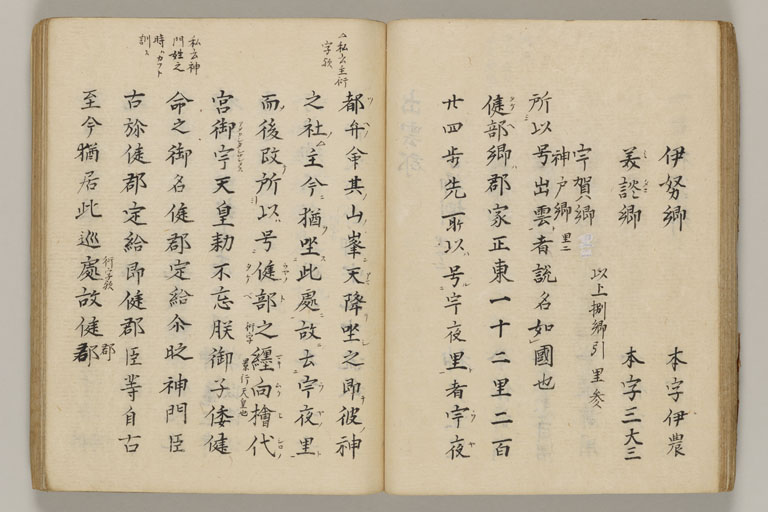 伊努郷 本字伊農
美談郷 本字三大三
宇賀郷 以上捌郷引 里参
神戸郷 里二
所以号出雲者說名如國也
健部郷郡家正東一十二里二百
廿四步先所以号宇夜里者宇夜
私云主衍字歟
都弁命其山峯天降坐之即彼神
之社主今猶坐此處故云宇夜里
而後改所以号健部之纏向檜代
衍字
景行天皇也
宮御宇天皇勅不忘朕御子倭健
私云神門姓之時ハカフト訓
命之御名健郡定給尒時神門臣
古祢健郡定給即健郡臣等自古
至今猶居此巡處故健郡
衍字歟
郡